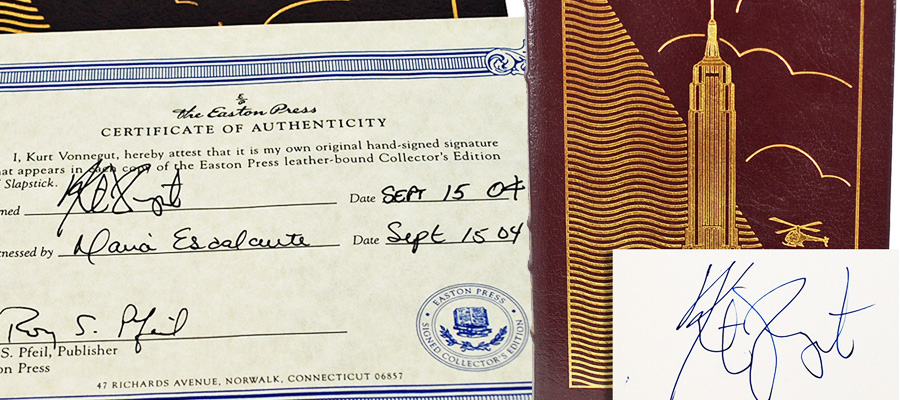 the Easton Press
CERTIFICATE OF AUTHENTICITY
I, Kurt Vonnegut, hereby attest that it is my own original hand-signed signature
hat appears in each copy of the Easton Press leather-bound Collector's Edition
f Slapstick.
ned Date SEPT 15 04
nessed by Maria Escalante Date Sept 15 04
Roy S. Pfeil
S. Pfeil, Publisher
on Press
EASTON PRESS
SIGNED COLLECTOR'S EDITION
47 RICHARDS AVENUE, NORWALK, CONNECTICUT 06857